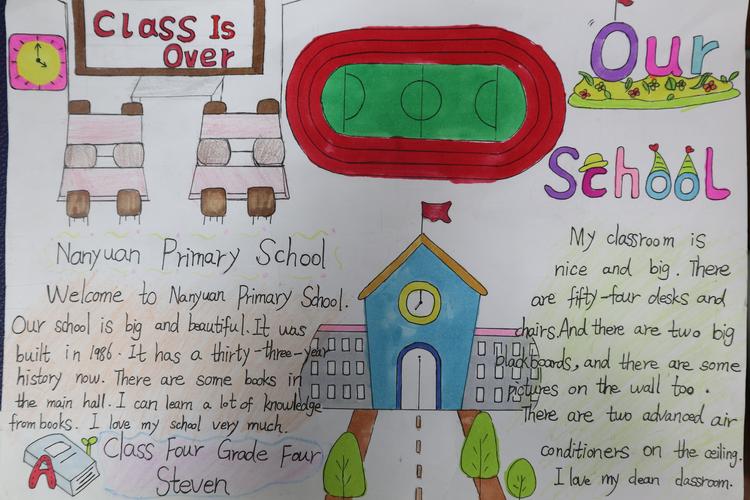 Class Is
Over
Our
School
Nanyuan Primary School
Welcome to Nanyuan Primary School.
Our school is big and beautiful. It was
built in 1986. It has a thirty-three-year
history now. There are some books in
the main hall. I can learn a lot of knowledge
from books. I love my school very much.
A
Class Four Grade Four
Steven
My classroom is
nice and big. There
are fifty-four desks and
chairs. And there are two big
blackboards, and there are some
pictures on the wall too.
There are two advanced air
conditioners on the ceiling.
I love my dean classroom.